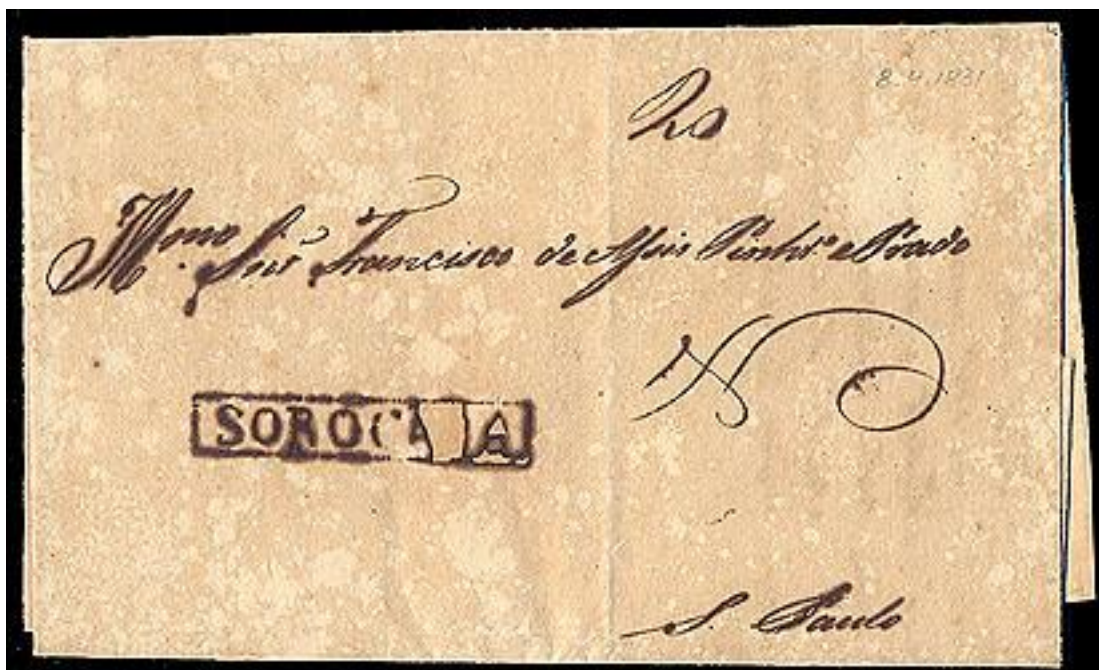 8.4.1831
20
Illmo. Snr Francisco de Assis Pinhr.o e Prado
SOROCA A
S. Paulo